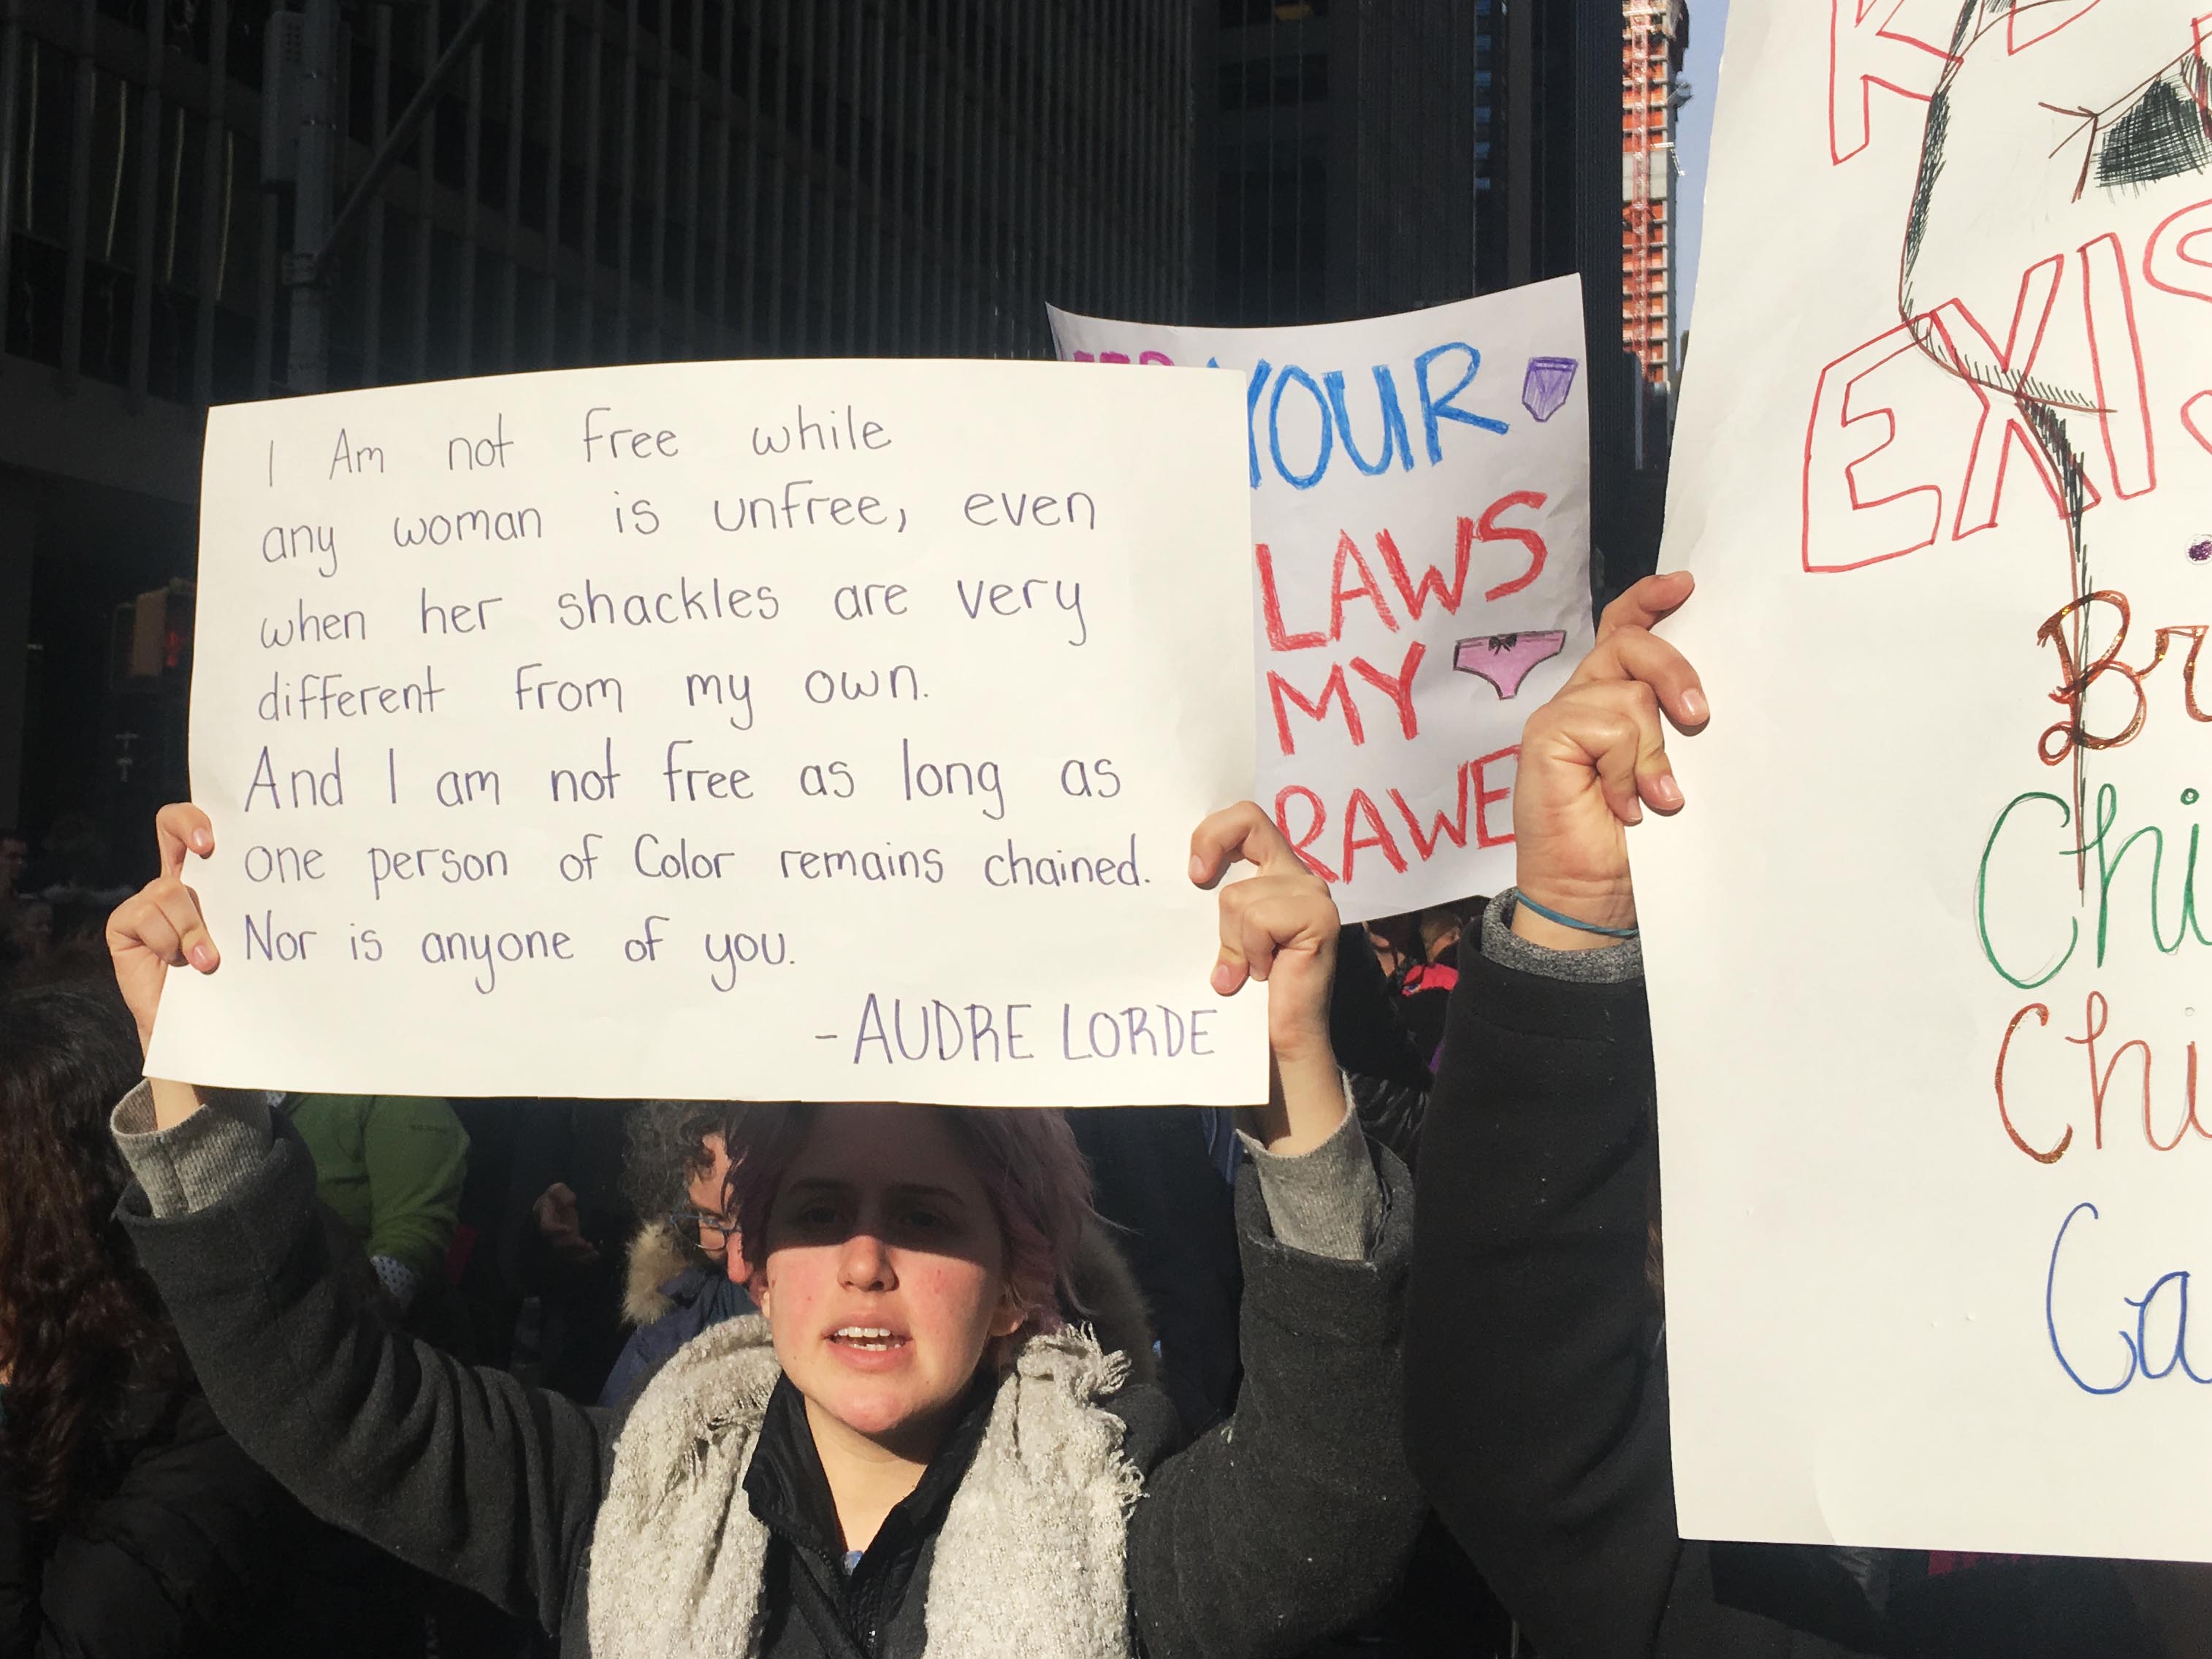 I Am not free while
any woman is unfree, even
when her shackles are very
different from my own.
And I am not free as long as
one person of Color remains chained.
Nor is anyone of you.
- AUDRE LORDE
YOUR
LAWS
MY
RAWE
EXIS
Br
Chi
Chi
Ca